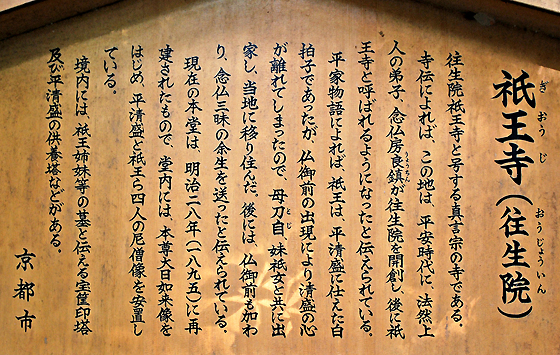 祇王寺(往生院)
ぎおうじ
おうじょういん
往生院祇王寺と号する真言宗の寺である。
寺伝によれば、この地は、平安時代に、法然上
人の弟子、念仏房良鎮が往生院を開創し、後に祇
りょうちん
王寺と呼ばれるようになったと伝えられている。
平家物語によれば、祇王は、平清盛に仕えた白
拍子であったが、仏御前の出現により清盛の心
が離れてしまったので、母刀自、妹祇女と共に出
とじ
家し、当地に移り住んだ。後には、仏御前も加わ
り、念仏三昧の余生を送ったと伝えられている。
現在の本堂は、明治二八年(一八九五)に再
建されたもので、堂内には、本尊大日如来像を
はじめ、平清盛と祇王ら四人の尼僧像を安置し
ている。
境内には、祇王姉妹等の墓と伝える宝筐印塔
及び平清盛の供養塔などがある。
京都市